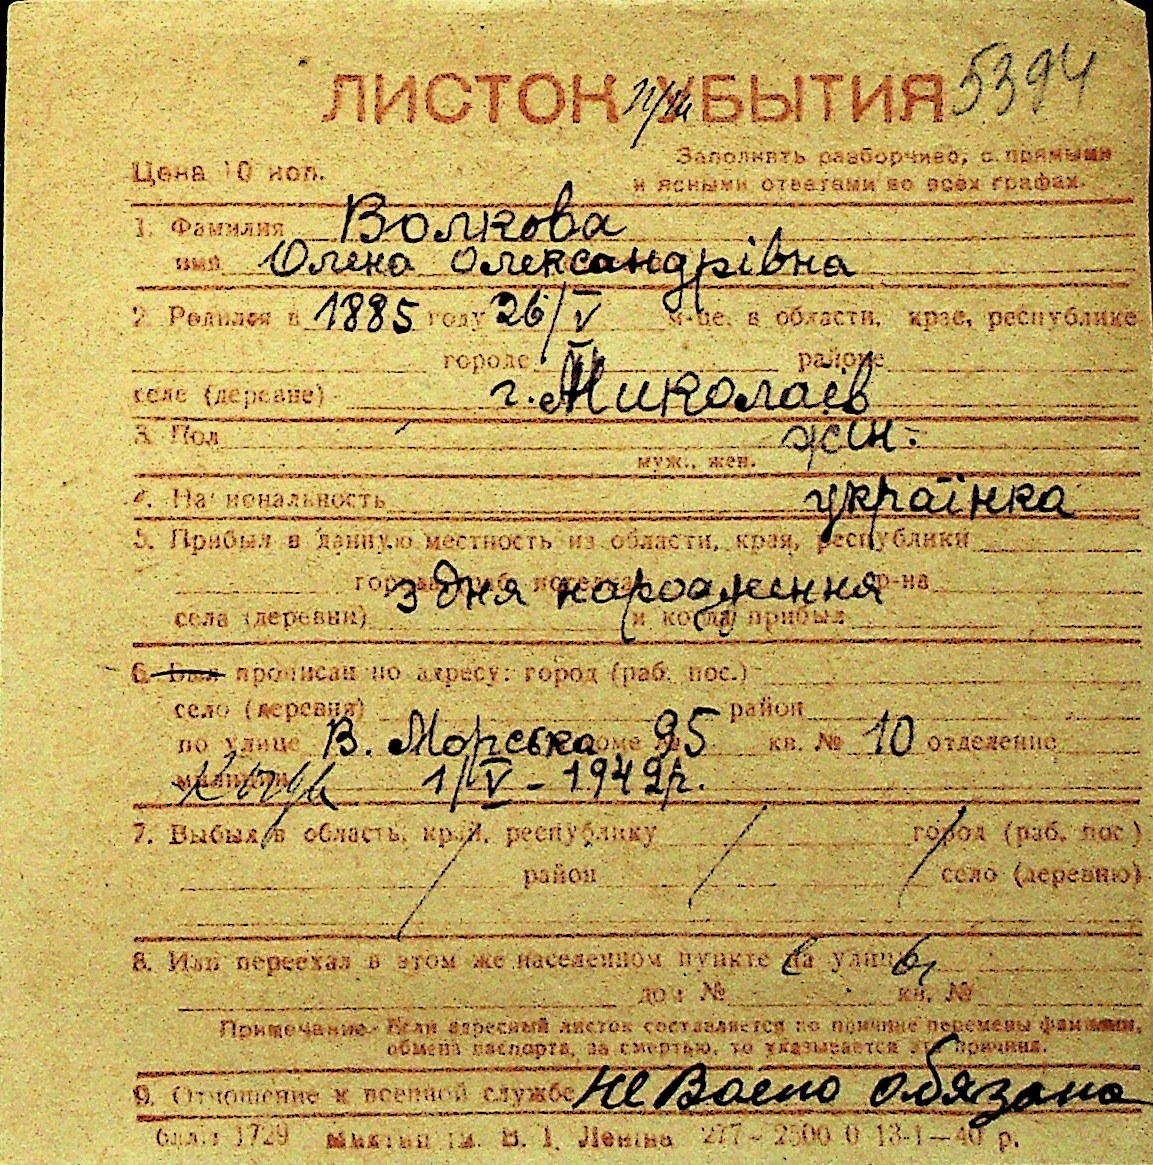 ЛИСТОК УБЫТИЯ 5394
Цена 10 коп.
Заполнять разборчиво, с прямыми
и ясными ответами во всех графах.
1. Фамилия Волкова
имя Олена Олександрівна
2. Родился в 1885 году 26/V м-це, в области, крае, республике
городе районе
селе (деревне) г. Миколаів
3. Пол жін.
муж., жен.
4. Национальность українка
5. Прибыл в данную местность из области, края, республики
з дня народження р-на
села (деревни) и когда прибыл
6. Был прописан по адресу: город (раб. пос.)
село (деревня) район
по улице В. Морська доме № 95 кв. № 10 отделение
милиции 1/V - 1942р.
7. Выбыл в область, край, республику город (раб. пос.)
район село (деревню)
8. Или переехал в этом же населенном пункте на улицу
дом № кв. №
Примечание. Если адресный листок составляется по причине перемены фамилии,
обмена паспорта, за смертью, то указывается эта причина.
9. Отношение к военной службе не Воено обязана
1729 ім. В. І. Леніна 277 – 2500 0 13-1—40 р.